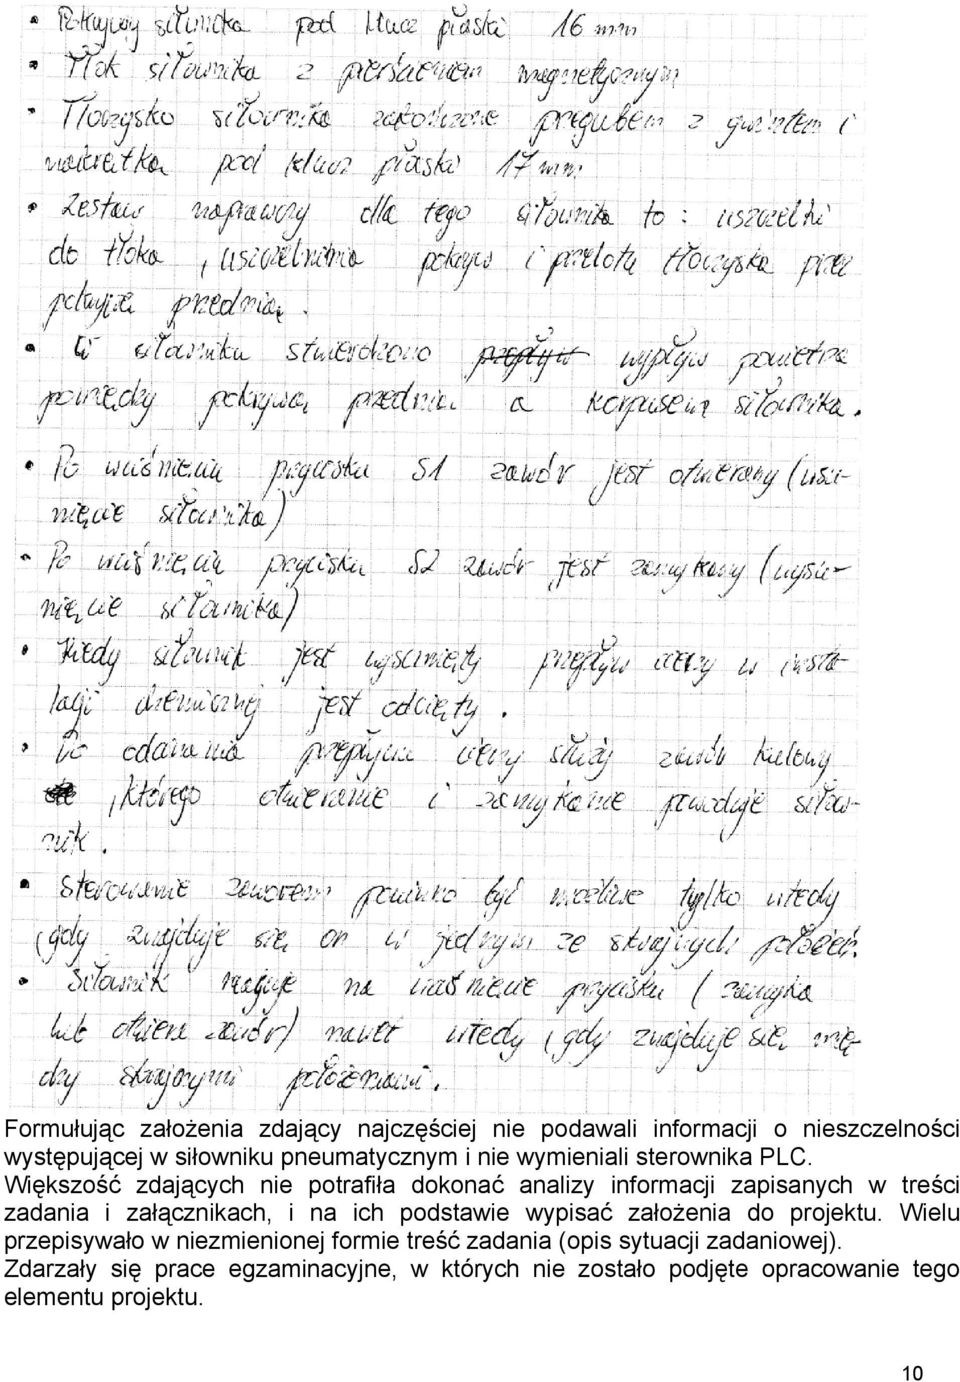 • Pokrywy siłownika pod klucz płaski 16 mm
• Tłok siłownika z pierścieniem magnetycznym
• Tłoczysko siłownika zakończone przegubem z gwintem i
nakrętką pod klucz płaski 17 mm
• Zestaw naprawczy dla tego siłownika to : uszczelki
do tłoka , uszczelnienia pokryw i przelotu tłoczyska przez
pokrywę przednią .
• W siłowniku stwierdzono przepływ wypływ powietrza
pomiędzy pokrywą przednią a korpusem siłownika .
• Po wciśnięciu przycisku S1 zawór jest otwierany (wsu-
nięcie siłownika)
• Po wciśnięciu przycisku S2 zawór jest zamykany (wysu-
nięcie siłownika)
• Kiedy siłownik jest wysunięty przepływ cieczy w insta-
lacji chemicznej jest odcięty .
• Do odcinania przepływu cieczy służy zawór kulowy
, którego otwieranie i zamykanie powoduje siłow-
nik .
• Sterowanie zaworem powinno być możliwe tylko wtedy
, gdy znajduje się on w jednym ze skrajnych położeń.
• Siłownik reaguje na wciśnięcie przycisku ( zamyka
lub otwiera zawór) nawet wtedy , gdy znajduje się mię-
dzy skrajnymi położeniami .
Formułując założenia zdający najczęściej nie podawali informacji o nieszczelności
występującej w siłowniku pneumatycznym i nie wymieniali sterownika PLC.
Większość zdających nie potrafiła dokonać analizy informacji zapisanych w treści
zadania i załącznikach, i na ich podstawie wypisać założenia do projektu. Wielu
przepisywało w niezmienionej formie treść zadania (opis sytuacji zadaniowej).
Zdarzały się prace egzaminacyjne, w których nie zostało podjęte opracowanie tego
elementu projektu.
10